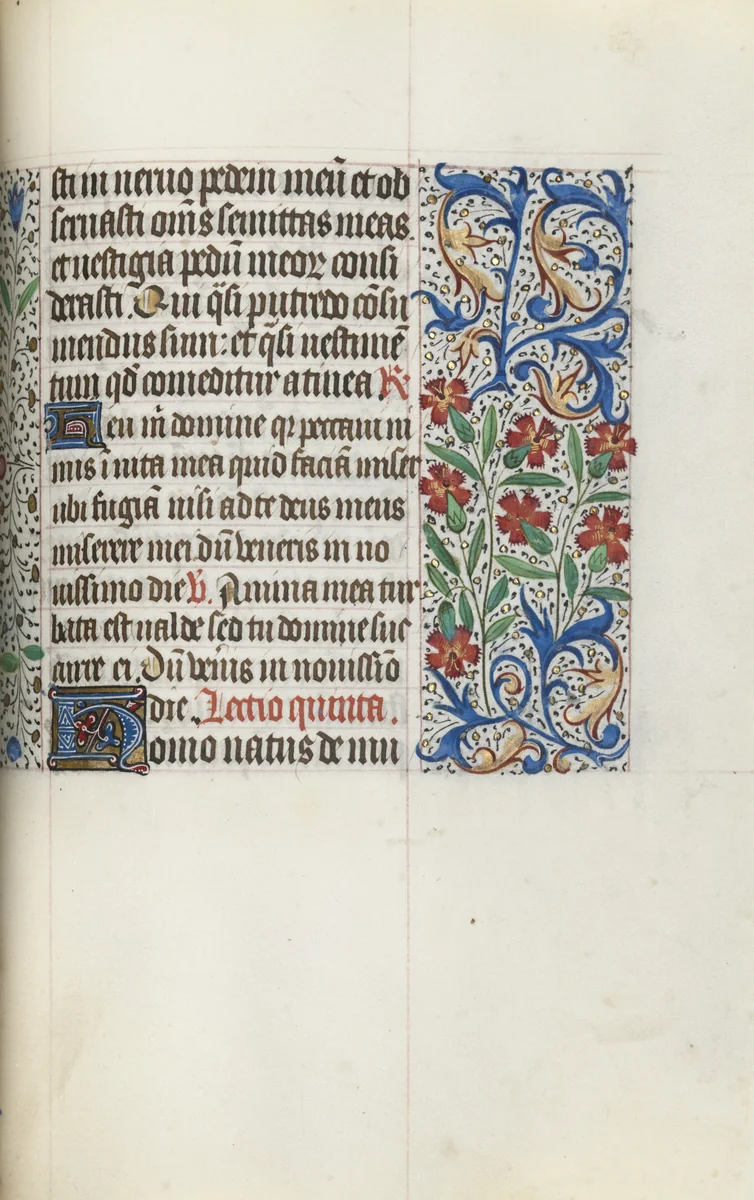 sti in neruo pedem meū et ob
seruasti om̄s semittas meas.
et uestigia pedū meoꝝ consi
derasti. Qui q̄si putredo cōsu
mendus sum: et q̄si uestimē
tum qd̄ comeditur a tinea ℟
Heu m̄ domine qꝛ peccaui ni
mis ī uita mea quid faciā miser
ubi fugiā nisi ad te deus meus
miserere mei dū veneris in no
uissimo die ℣. Anima mea tur
bata est ualde sed tu domine suc
curre ei. Dū veneris in nouissīo
die. Lectio quinta.
Homo natus de mu